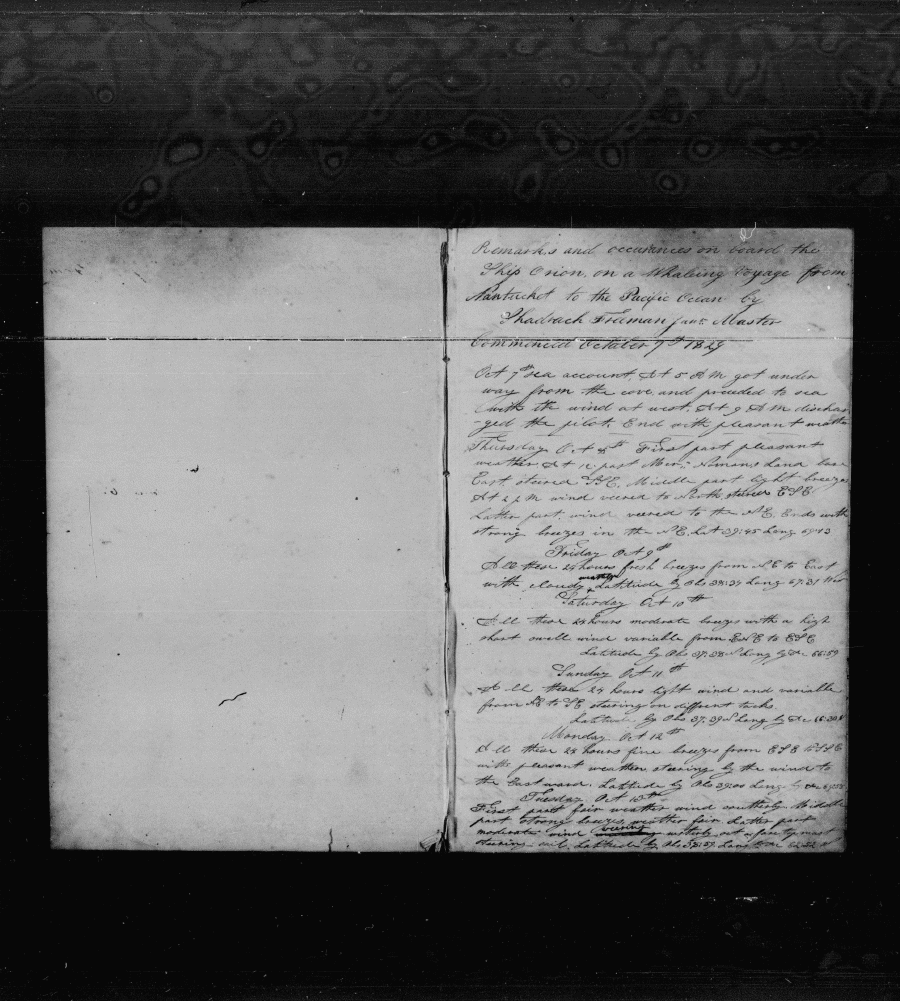 Remarks and occurences on board the
Ship Orion, on a Whaleing Voyage from
Nantucket to the Pacific Ocean by
Shadrach Freeman junr. Master
Commenced October 7th 1829
Oct 7th sea account. At 5 AM got under
way from the cove and proceded to sea
with the wind at west. At 9 AM dischar
-ged the pilot. End with pleasant weather
Thursday Oct 8th First part pleasant
weather At 12 past Mer. Nomans Land bore
East steered SSE. Middle part light breezes
At 2 PM wind veered to North steered ESE
Latter part wind veered to the NE. Ends with
strong breezes in the NE. Lat 39:45 Long 69:13
Friday Oct 9th
All these 24 hours fresh breezes from NE to East
with cloudy weather Latitude by Obs 38:37 Long 67:31 West
Saturday Oct 10th
All these 24 hours moderate breezes with a high
short swell wind variable from ENE to ESE
Latitude by Obs 37:38 N Long by Dr 66:59
Sunday Oct 11th
All these 24 hours light wind and variable
from NE to SE steering on different tacks.
Latitude by Obs 37:39 N Long by Dr 66:30 W
Monday Oct 12th
All these 24 hours fine breezes from ESE to SSE
with pleasant weather steering by the wind to
the Eastward. Latitude by Obs 39:00 Long by Dr
Tuesday Oct 13th
First part fair weather wind southerly Middle
part strong breezes weather fair. Latter part
moderate wind veering westerly out a foretopmast
steering sail. Latitude by Obs 38:59 Long by Dr 62:32 W